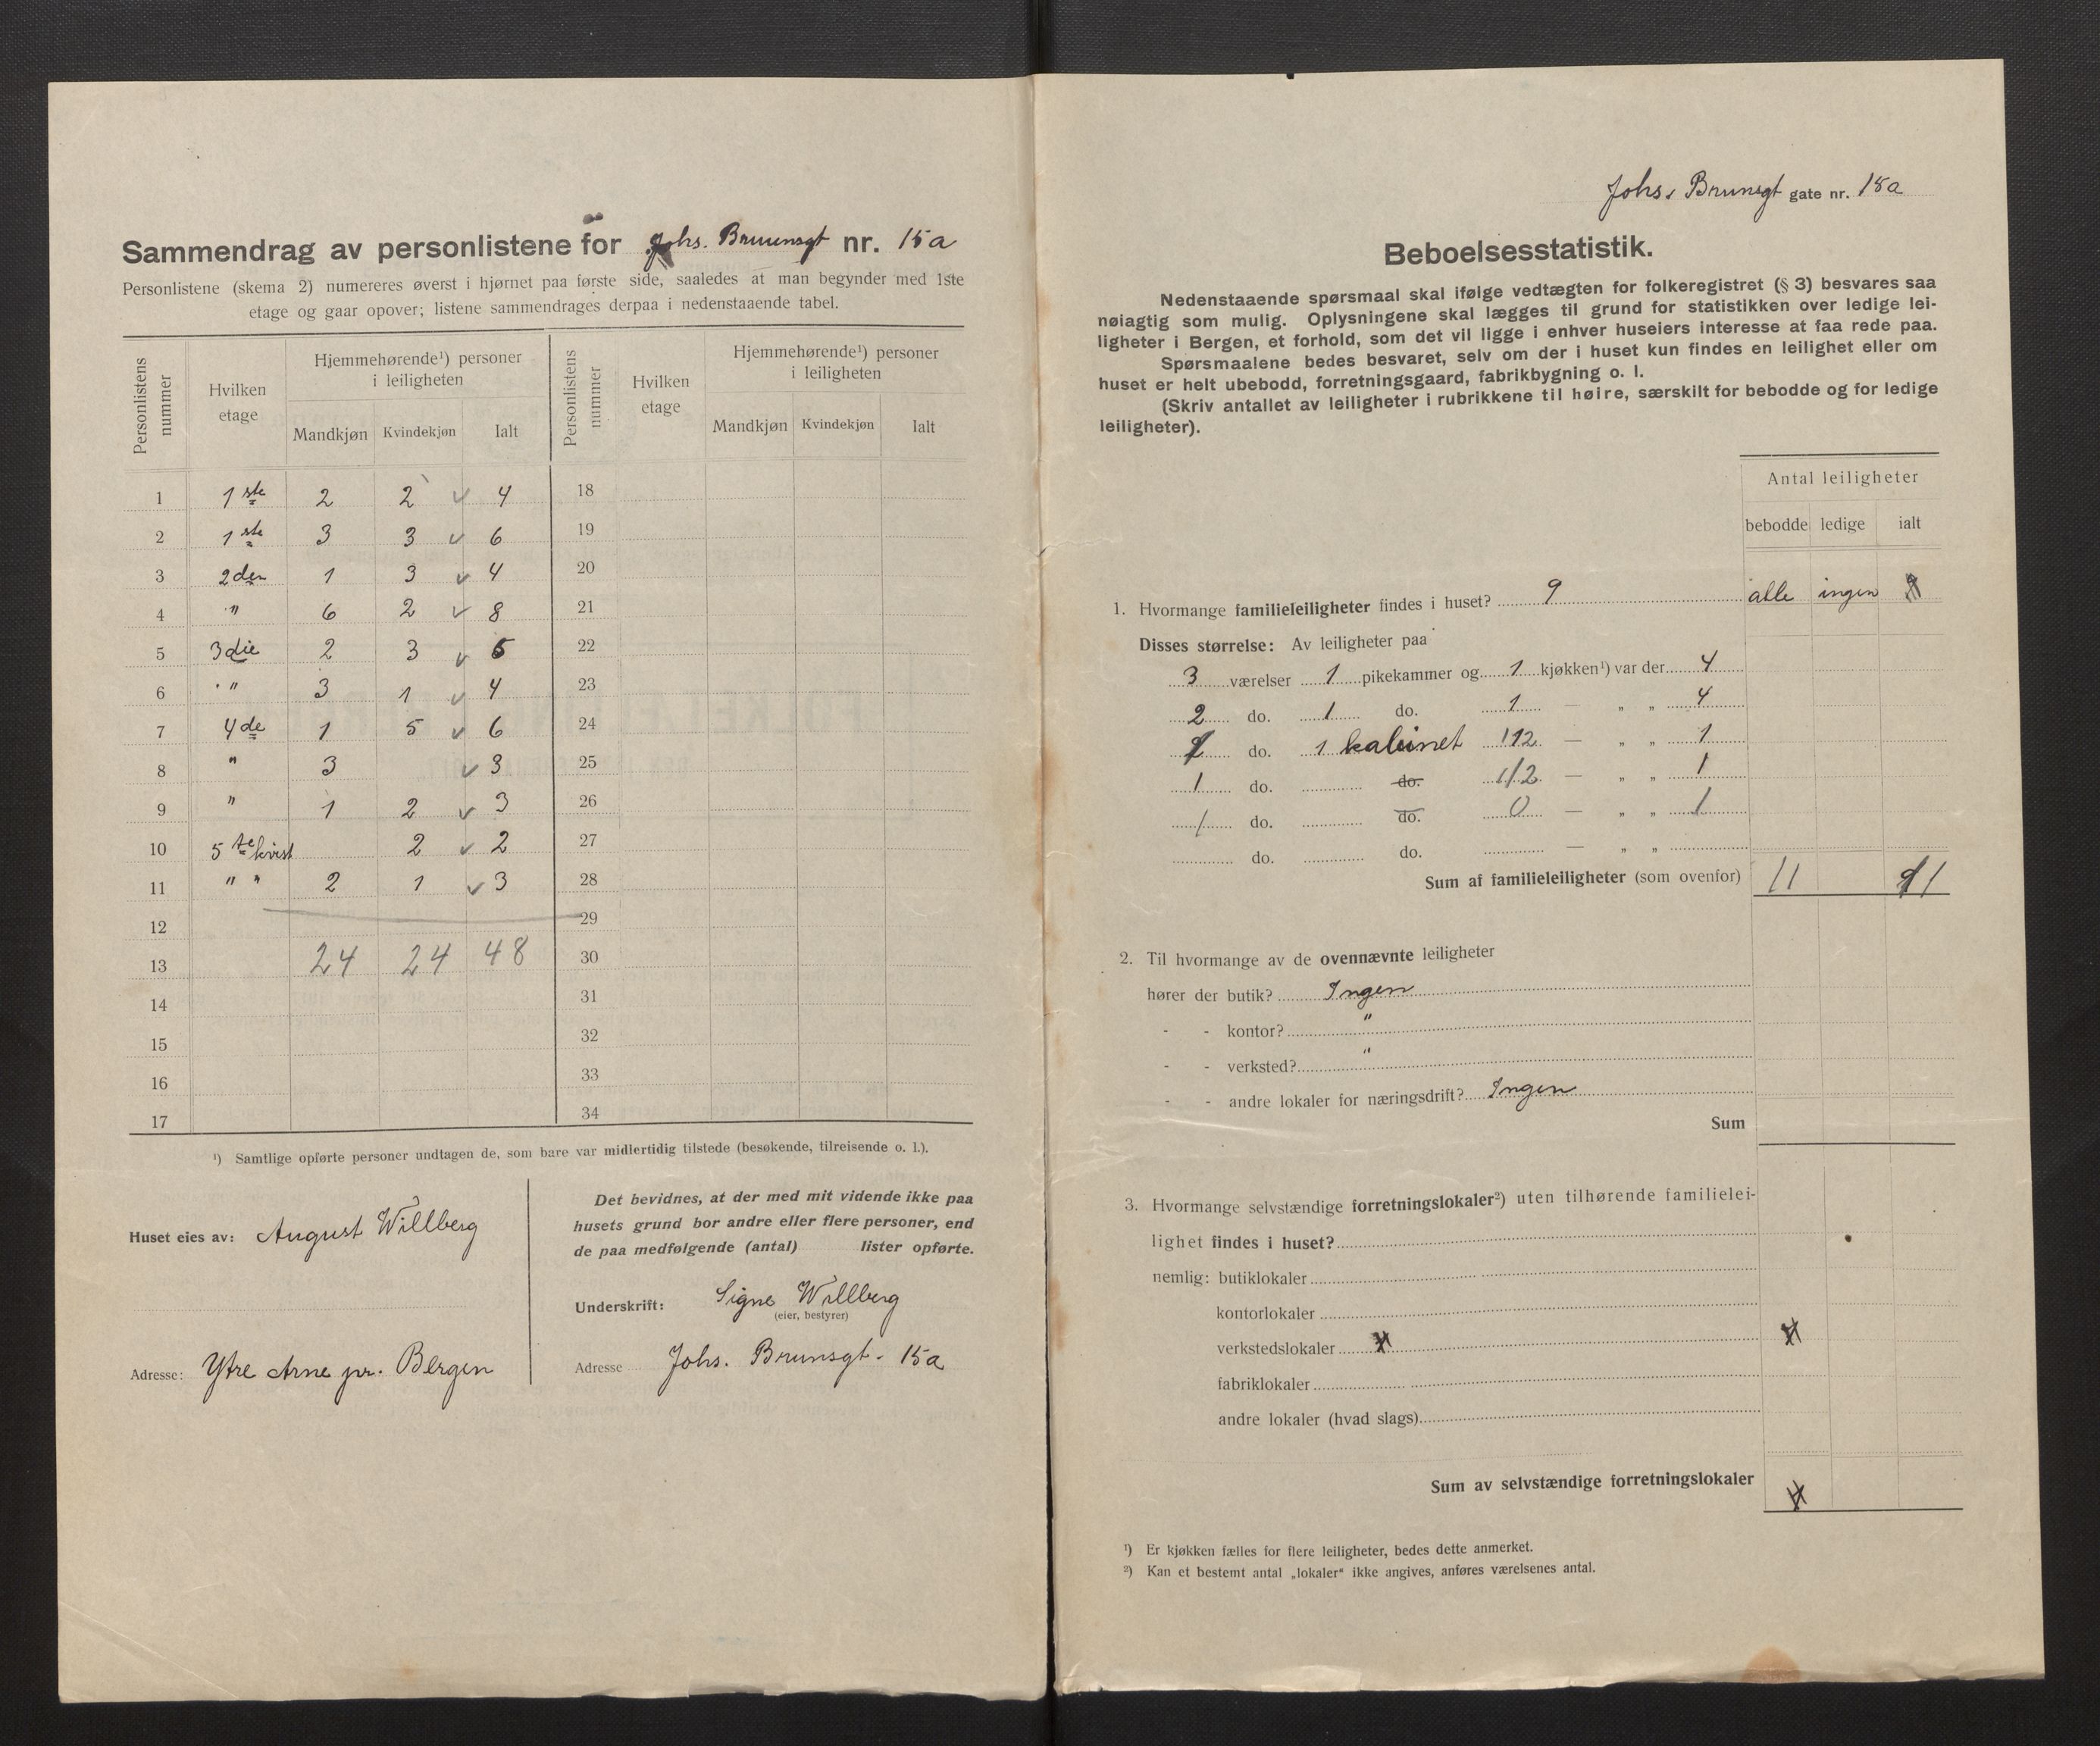 Sammendrag av personlistene for Johs. Bruunsgt nr. 15a
Personlistene (skema 2) numereres øverst i hjørnet paa første side, saaledes at man begynder med 1ste
etage og gaar opover; listene sammendrages derpaa i nedenstaaende tabel.
Personlistens nummer | Hvilken etage | Hjemmehørende¹) personer i leiligheten | Personlistens nummer | Hvilken etage | Hjemmehørende¹) personer i leiligheten
Mandkjøn | Kvindekjøn | Ialt | Mandkjøn | Kvindekjøn | Ialt
1 1ste 2 2 ✓ 4 18
2 1ste 3 3 ✓ 6 19
3 2den 1 3 ✓ 4 20
4 " 6 2 ✓ 8 21
5 3die 2 3 ✓ 5 22
6 " 3 1 ✓ 4 23
7 4de 1 5 ✓ 6 24
8 " 3 ✓ 3 25
9 " 1 2 ✓ 3 26
10 5te kvist 2 ✓ 2 27
11 " " 2 1 ✓ 3 28
12 29
13 24 24 48 30
14 31
15 32
16 33
17 34
¹) Samtlige opførte personer undtagen de, som bare var midlertidig tilstede (besøkende, tilreisende o. l.).
Huset eies av: August Willberg
Adresse: Ytre Arne pr. Bergen
Det bevidnes, at der med mit vidende ikke paa
husets grund bor andre eller flere personer, end
de paa medfølgende (antal) lister opførte.
Underskrift: Signe Willberg
(eier, bestyrer)
Adresse Johs. Brunsgt. 15a
Johs. Brunsgt gate nr. 15a
Beboelsesstatistik.
Nedenstaaende spørsmaal skal ifølge vedtægten for folkeregistret (§ 3) besvares saa
nøiagtig som mulig. Oplysningene skal lægges til grund for statistikken over ledige lei-
ligheter i Bergen, et forhold, som det vil ligge i enhver huseiers interesse at faa rede paa.
Spørsmaalene bedes besvaret, selv om der i huset kun findes en leilighet eller om
huset er helt ubebodd, forretningsgaard, fabrikbygning o. l.
(Skriv antallet av leiligheter i rubrikkene til høire, særskilt for bebodde og for ledige
leiligheter).
Antal leiligheter
bebodde ledige ialt
1. Hvormange familieleiligheter findes i huset? 9 alle ingen
Disses størrelse: Av leiligheter paa
3 værelser 1 pikekammer og 1 kjøkken¹) var der 4
2 do. 1 do. 1 — „ „ 4
do. 1 kabinet 1/2 — „ „ 1
1 do. do. 1/2 — „ „ 1
1 do. do. 0 — „ „ 1
do. do. — „ „
Sum af familieleiligheter (som ovenfor) 11 11
2. Til hvormange av de ovennævnte leiligheter
hører der butik? Ingen
- - kontor? "
- - verksted? "
- - andre lokaler for næringsdrift? Ingen
Sum
3. Hvormange selvstændige forretningslokaler²) uten tilhørende familielei-
lighet findes i huset?
nemlig: butiklokaler
kontorlokaler
verkstedslokaler
fabriklokaler
andre lokaler (hvad slags)
Sum av selvstændige forretningslokaler
¹) Er kjøkken fælles for flere leiligheter, bedes dette anmerket.
²) Kan et bestemt antal „lokaler“ ikke angives, anføres værelsenes antal.